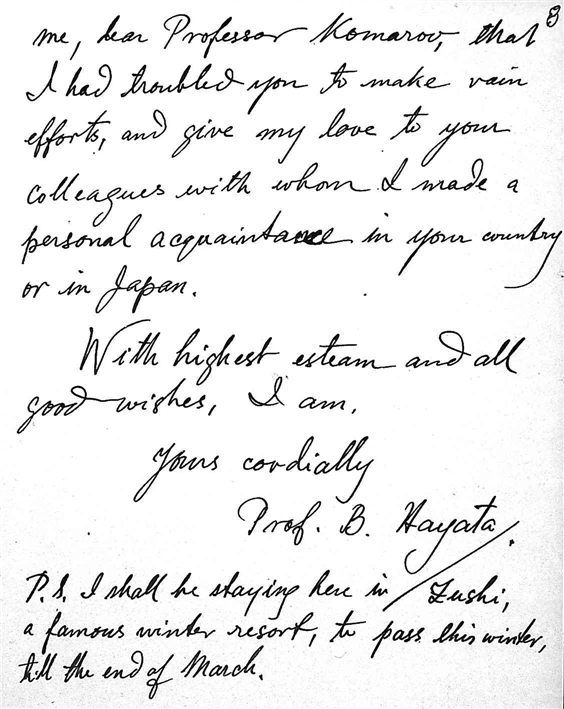 8
me, dear Professor Komarov, that
I had troubled you to make vain
efforts, and give my love to your
colleagues with whom I made a
personal acquaintance in your country
or in Japan.
With highest esteam and all
good wishes, I am,
Yours cordially
Prof. B. Hayata.
P.S. I shall be staying here in Zushi,
a famous winter resort, to pass this winter,
till the end of March.